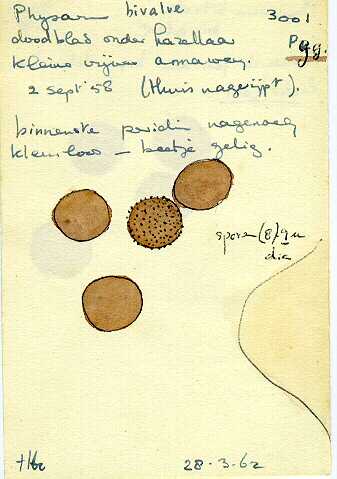 Physarum bivalve 3001
doodblad onder hazelaar
kleine vijver
2 sept 58 (thuis nagerijpt).
binnenste peridie nagenoeg
kleurloos – beetje gelig.
sporen (8) 9 μ
dia
28-3-62